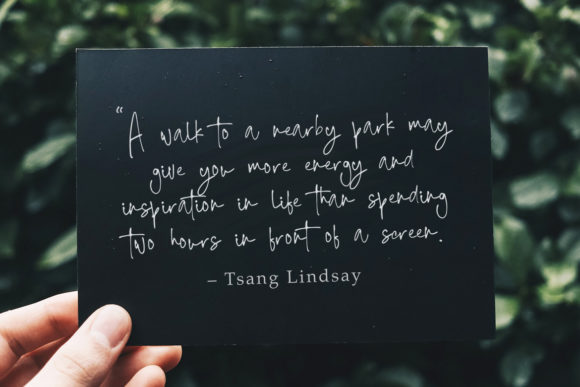 “A walk to a nearby park may
give you more energy and
inspiration in life than spending
two hours in front of a screen.
– Tsang Lindsay